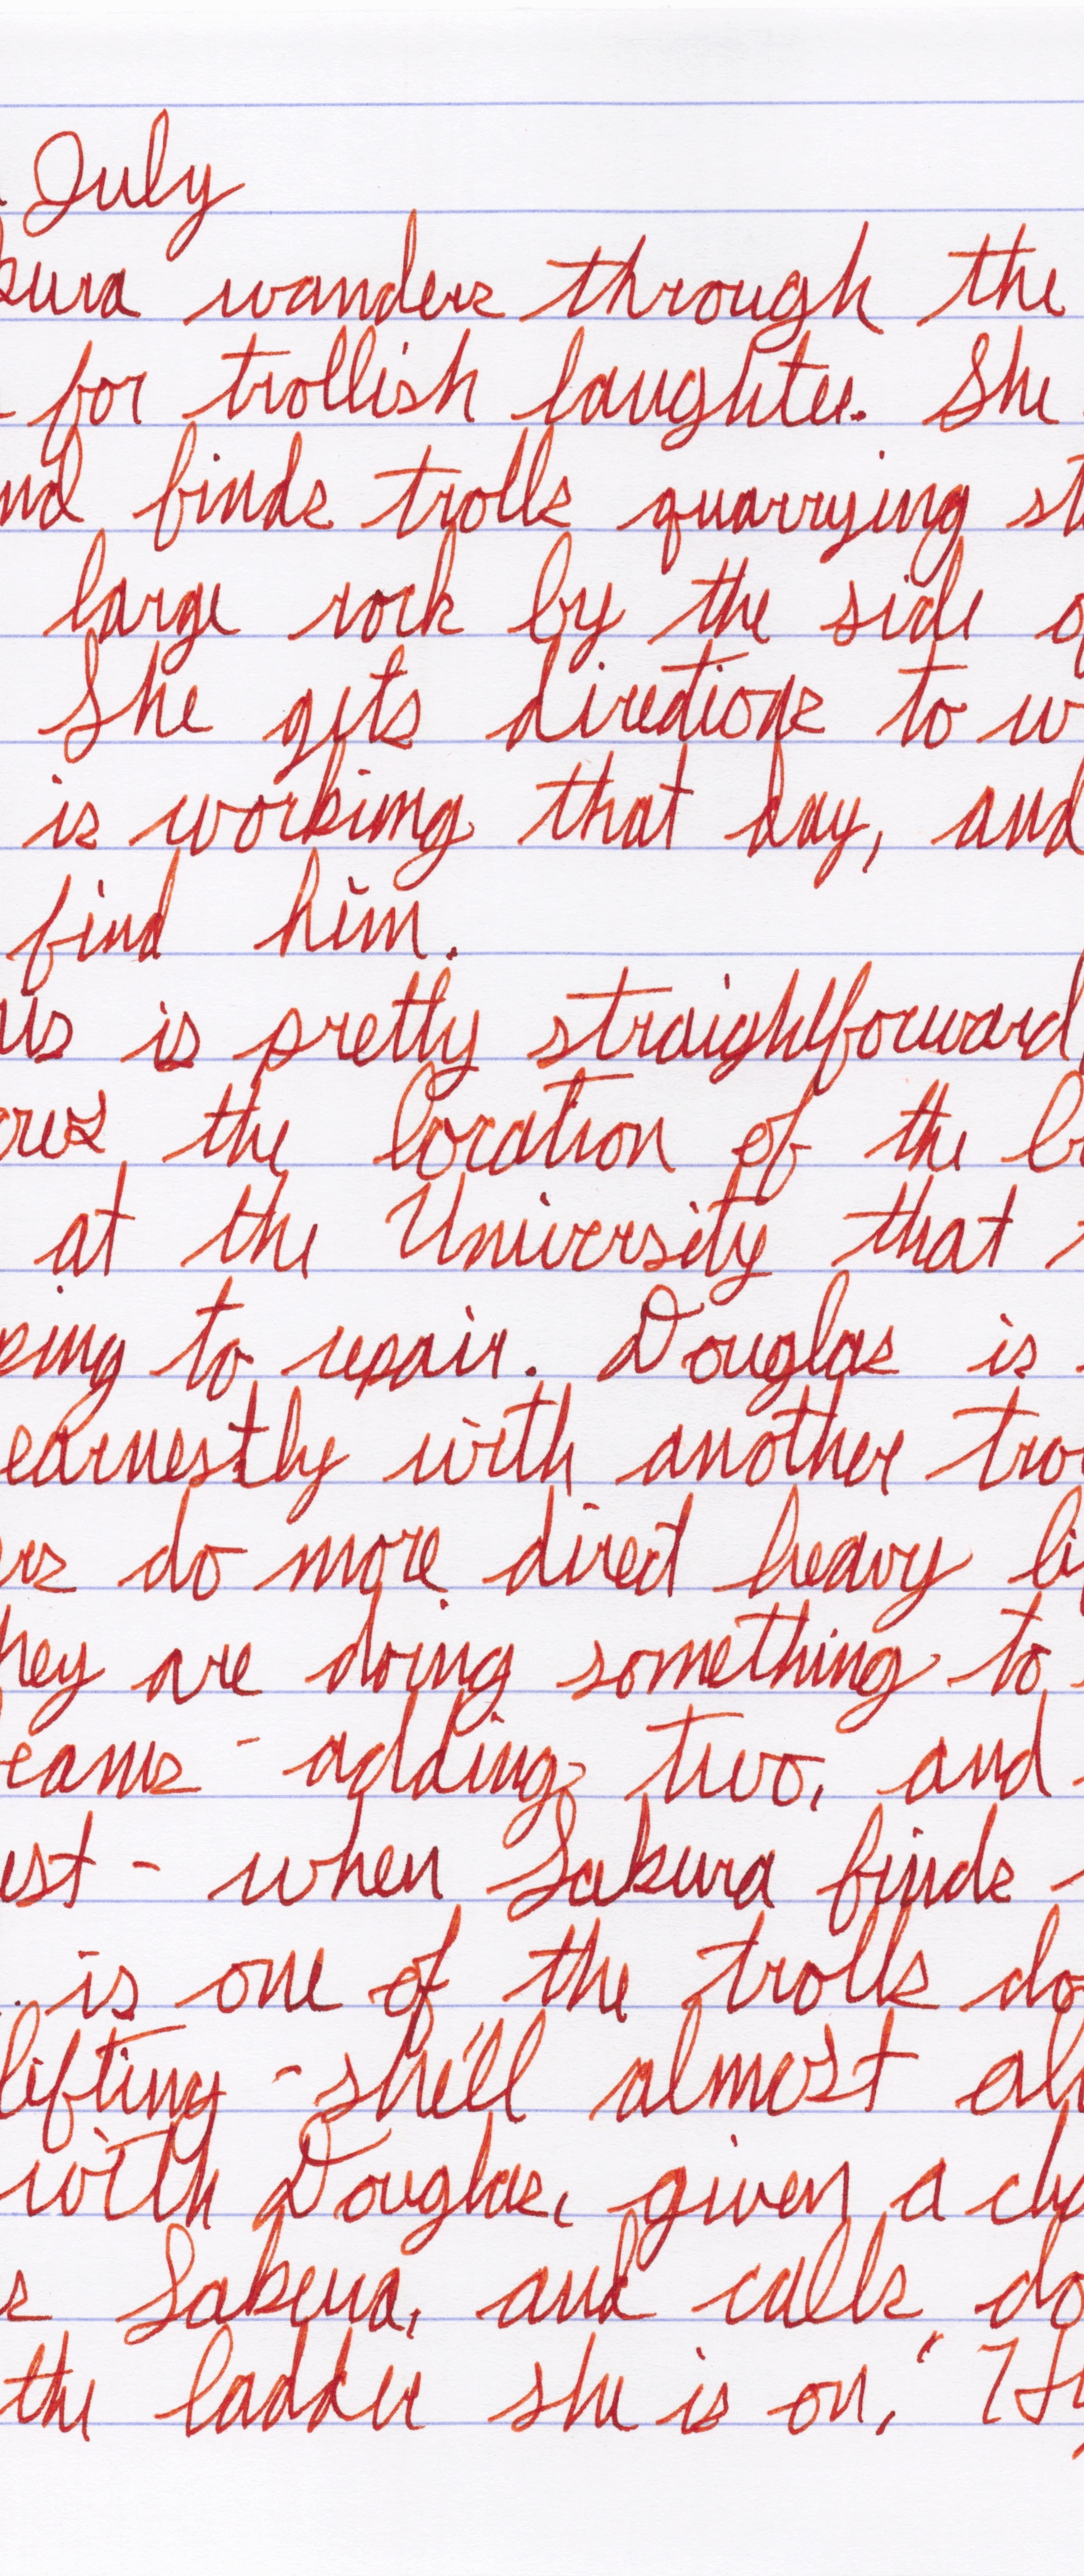 July
kura wanders through the
for trollish laughter. She
nd finds trolls quarrying st
large rock by the side o
She gets directions to w
is working that day, and
find him.
is pretty straightforward,
the location of the b
at the University that
ping to repair. Douglas is
earnestly with another tro
ers do more direct heavy li
hey are doing something to
eams - adding two, and
est - when Sakura finds
is one of the trolls do
lifting - she'll almost al
with Douglas, given a cha
s Sakura, and calls do
the ladder she is on, "Hy